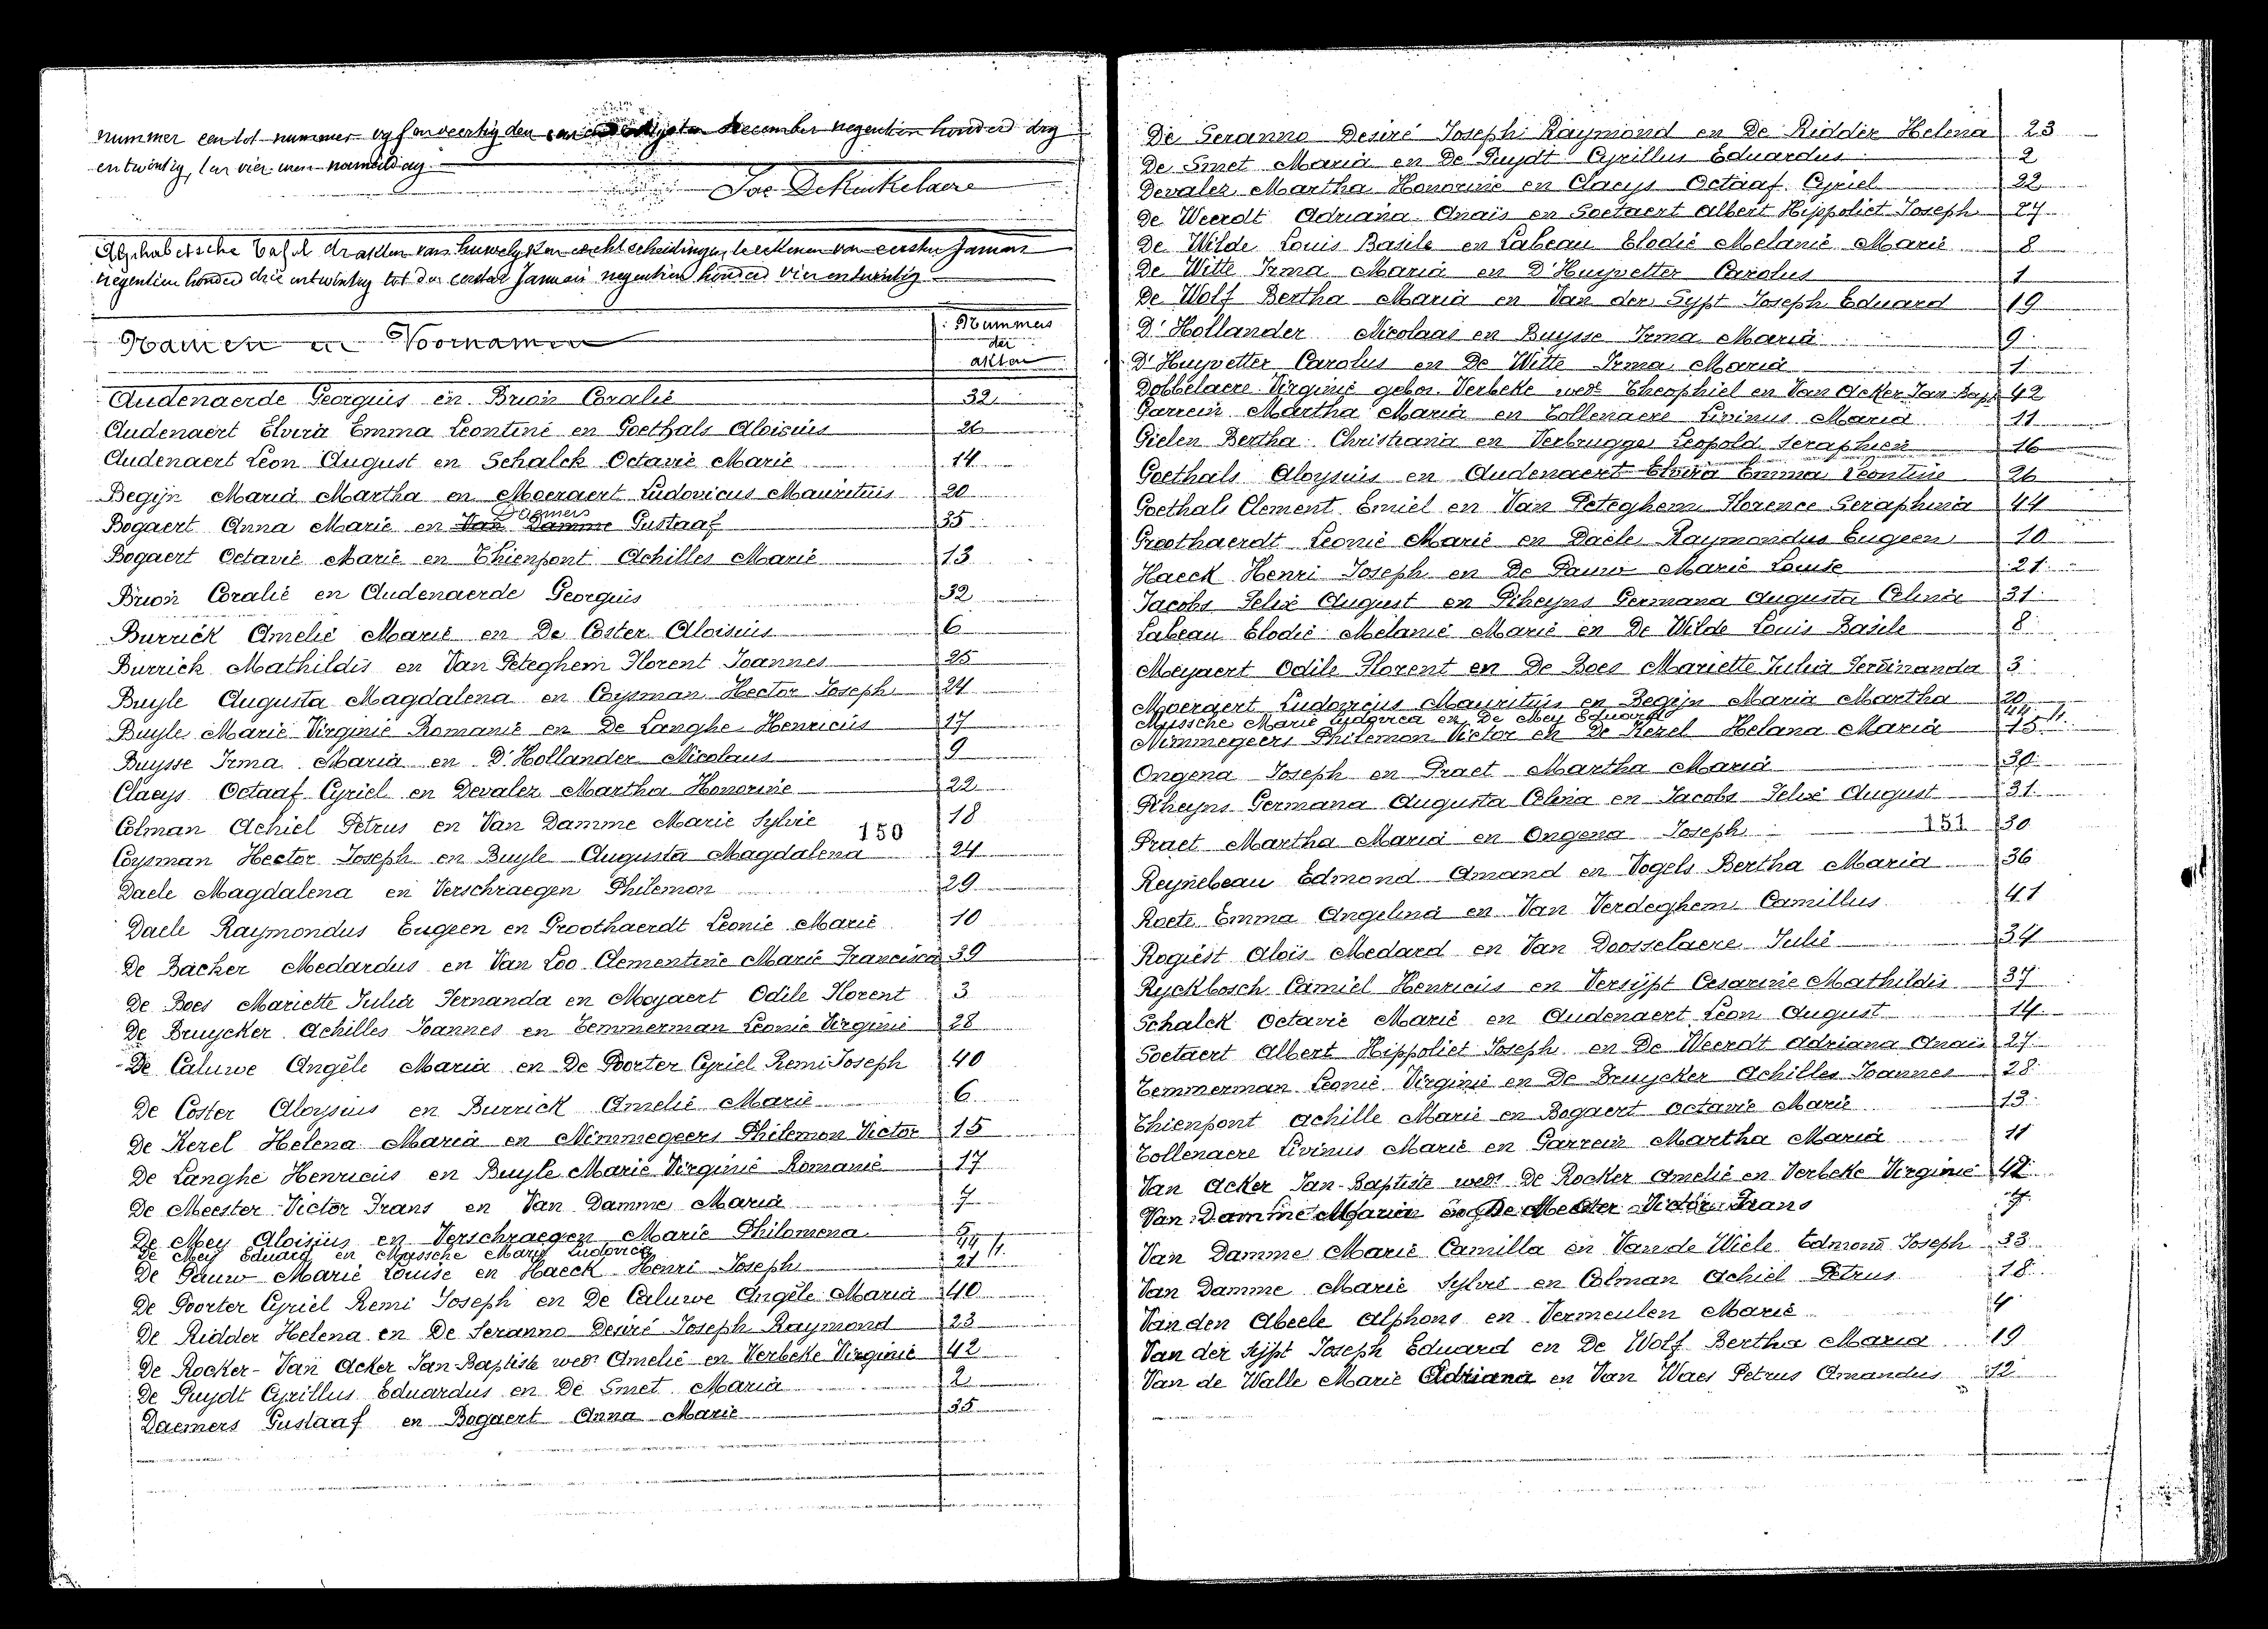 nummer een tot nummer vyf en veertig den een en dertigsten December negentien honderd dry
en twintig, ten vier uren namiddag
Jos De Kinkelaere
Alphabetische Tafel der akten van huwelyken en echtscheidingen, te rekenen van eersten Januari
negentien honderd drie en twintig tot den eersten Januari negentien honderd vier en twintig
Namen en Voornamen
Nummers
der
akten
Audenaerde Georguis en Brion Coralie 32
Audenaert Elvira Emma Leontine en Goethals Aloisius 26
Audenaert Leon August en Schalck Octavie Marie 14
Begijn Maria Martha en Moeraert Ludovicus Mauritius 20
Daemers
Bogaert Anna Marie en Van Damme Gustaaf 35
Bogaert Octavie Marie en Thienpont Achilles Marie 13
Brion Coralie en Audenaerde Georguis 32
Burrick Amelie Marie en De Coster Aloisius 6
Burrick Mathildis en Van Peteghem Florent Joannes 25
Buyle Augusta Magdalena en Coysman Hector Joseph 24
Buyle Marie Virginie Romanie en De Langhe Henricus 17
Buysse Irma Maria en D'Hollander Nicolaus 9
Claeys Octaaf Cyriel en Devalez Martha Honorine 22
Colman Achiel Petrus en Van Damme Marie Sylvie 18
150
Coysman Hector Joseph en Buyle Augusta Magdalena 24
Daele Magdalena en Verschraegen Philemon 29
Daele Raymondus Eugeen en Groothaerdt Leonie Marie 10
De Backer Medardus en Van Loo Clementine Marie Francisca 39
De Boes Mariette Julia Fernanda en Moyaert Odile Florent 3
De Bruycker Achilles Joannes en Temmerman Leonie Virginie 28
De Caluwe Angèle Maria en De Poorter Cyriel Remi Joseph 40
De Coster Aloysius en Burrick Amelie Marie 6
De Kezel Helena Maria en Nimmegeers Philemon Victor 15
De Langhe Henricus en Buyle Marie Virginie Romanie 17
De Meester Victor Frans en Van Damme Maria 7
De Mey Aloisius en Verschraegen Marie Philomena 5
De Mey Eduard en Mussche Marie Ludovica 44
De Pauw Marie Louise en Haeck Henri Joseph 21
De Poorter Cyriel Remi Joseph en De Caluwe Angèle Maria 40
De Ridder Helena en De Seranno Desiré Joseph Raymond 23
De Rocker - Van Acker Jan-Baptiste wedr Amelie en Verbeke Virginie 42
De Puydt Cyrillus Eduardus en De Smet Maria 2
Daemers Gustaaf en Bogaert Anna Marie 35
De Seranno Desiré Joseph Raymond en De Ridder Helena 23
De Smet Maria en De Puydt Cyrillus Eduardus 2
Devalez Martha Honorine en Claeys Octaaf Cyriel 22
De Weerdt Adriana Anaïs en Soetaert Albert Hippoliet Joseph 27
De Wilde Louis Basile en Labeau Elodie Melanie Marie 8
De Witte Irma Maria en D'Huyvetter Carolus 1
De Wolf Bertha Maria en Van der Sypt Joseph Eduard 19
D'Hollander Nicolaas en Buysse Irma Maria 9
D'Huyvetter Carolus en De Witte Irma Maria 1
Dobbelaere Virginie gebor. Verbeke wede Theophiel en Van Acker Jan-Bapt 42
Garrein Martha Maria en Tollenaere Livinus Maria 11
Gielen Bertha Christiana en Verbrugge Leopold Seraphien 16
Goethals Aloysius en Audenaert Elvira Emma Leontine 26
Goethals Clement Emiel en Van Peteghem Florence Seraphina 44
Groothaerdt Leonie Marie en Daele Raymondus Eugeen 10
Haeck Henri Joseph en De Pauw Marie Louise 21
Jacobs Felix August en Piheyns Germana Augusta Celina 31
Labeau Elodie Melanie Marie en De Wilde Louis Basile 8
Moyaert Odile Florent en De Boes Mariette Julia Ferdinanda 3
Moeraert Ludovicus Mauritius en Begijn Maria Martha 20
Mussche Marie Ludovica en De Mey Eduard 44
Nimmegeers Philemon Victor en De Kezel Helana Maria 15
Ongena Joseph en Praet Martha Maria 30
Piheyns Germana Augusta Celina en Jacobs Felix August 31
151
Praet Martha Maria en Ongena Joseph 30
Reynebeau Edmond Amand en Vogels Bertha Maria 36
Roets Emma Angelina en Van Verdeghem Camillus 41
Rogiest Aloïs Medard en Van Doosselaere Julie 34
Ryckbosch Camiel Henricus en Versijpt Cesarine Mathildis 37
Schalck Octavie Marie en Audenaert Leon August 14
Soetaert Albert Hippoliet Joseph en De Weerdt Adriana Anaïs 27
Temmerman Leonie Virginie en De Bruycker Achilles Joannes 28
Thienpont Achille Marie en Bogaert Octavie Marie 13
Tollenaere Livinus Marie en Garrein Martha Maria 11
Van Acker Jan-Baptiste wedr De Rocker Amelie en Verbeke Virginie 42
Van Damme Maria en De Meester Victor Frans 7
Van Damme Marie Camilla en Van de Wiele Edmond Joseph 33
Van Damme Marie Sylvie en Colman Achiel Petrus 18
Van den Abeele Alphons en Vermeulen Marie 4
Van der Sijpt Joseph Eduard en De Wolf Bertha Maria 19
Van de Walle Marie Adriana en Van Waes Petrus Amandus 12